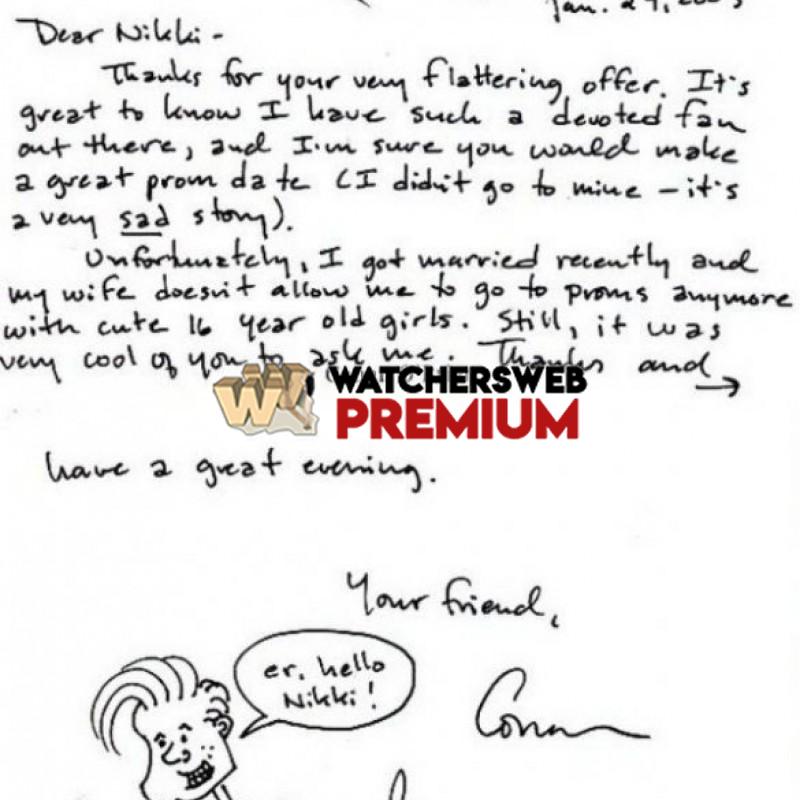 Jan. 29, 2003
Dear Nikki -
Thanks for your very flattering offer. It's
great to know I have such a devoted fan
out there, and I'm sure you would make
a great prom date (I didn't go to mine - it's
a very sad story).
Unfortunately, I got married recently and
my wife doesn't allow me to go to proms anymore
with cute 16 year old girls. Still, it was
very cool of you to ask me. Thanks and →
WATCHERSWEB
PREMIUM
have a great evening.
Your friend,
er, hello
Nikki!
Conan